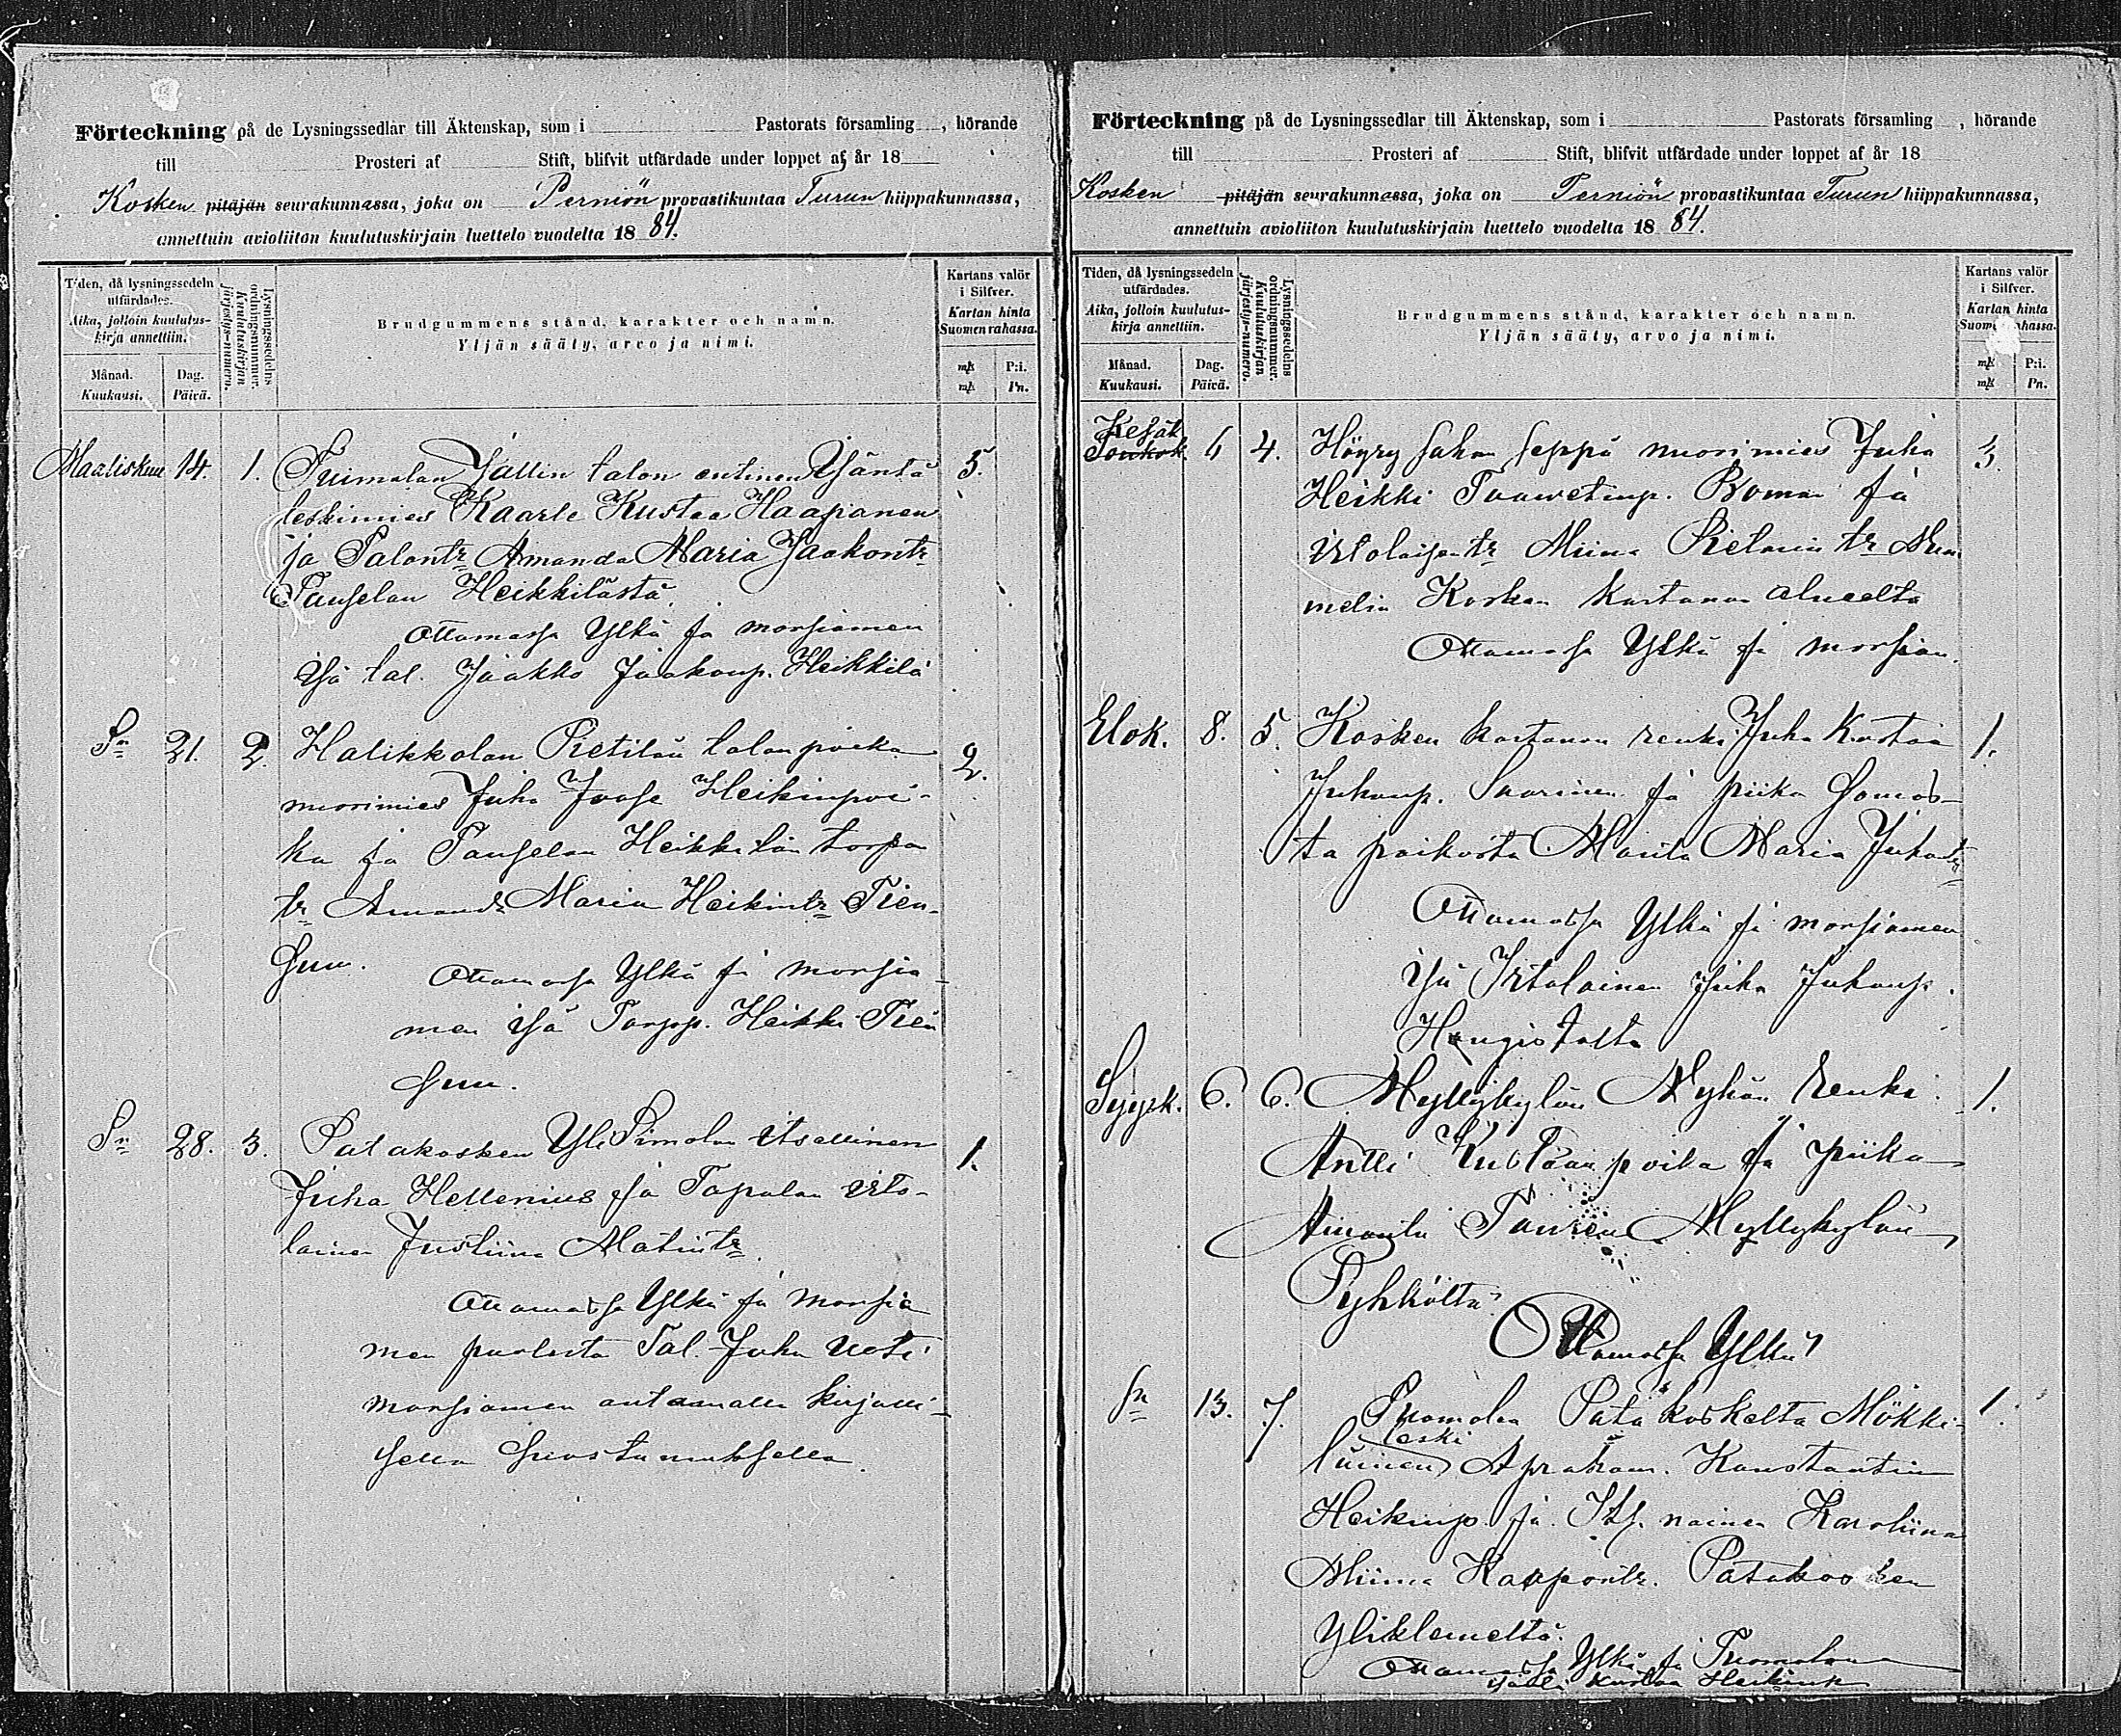 Förteckning på de Lysningssedlar till Äktenskap, som i Pastorats församling , hörande
till Prosteri af Stift, blifvit utfärdade under loppet af år 18
Kosken pitäjän seurakunnassa, joka on Perniön provastikuntaa Turun hiippakunnassa,
annettuin avioliiton kuulutuskirjain luettelo vuodelta 1884.
Tiden, då lysningssedeln utfärdades.
Aika, jolloin kuulutus-kirja annettiin.
Månad. Kuukausi.
Dag. Päivä.
Lysningssedelns ordningsnummer.
Kuulutuskirjan järjestys-numero.
Brudgummens stånd, karakter och namn.
Yljän sääty, arvo ja nimi.
Kartans valör i Silfver.
Kartan hinta Suomen rahassa.
mk P:i.
mk Pn.
Maaliskuu 14. 1. Tuimalan Jallin talon entinen Isäntä 5.
leskimies Kaarle Kustaa Haapanen
ja Talontr Amanda Maria Jaakontr
Tauselan Heikkilästä
Ottamassa Ylkä ja morsiamen
isä tal. Jaakko Jaakonp. Heikkilä
Sn 21. 2. Halikkolan Pietilän talon poika 2.
nuorimies Juha Joose Heikinpoi-
ka ja Tauselan Heikkilän torpan
tr Amanda Maria Heikintr Tien-
suu.
Ottamassa Ylkä ja morsia-
men isä Torpp. Heikki Tien
suu.
Sn 28. 3. Patakosken Yli Pimolan itsellinen 1.
Juha Hellenius ja Tapalan irto-
lainen Justiina Matintr
Ottamassa Ylkä ja morsia
men puolesta Tal. Juha Uoti
morsiamen antamalla kirjalli-
sella suostumuksella.
Förteckning på de Lysningssedlar till Äktenskap, som i Pastorats församling , hörande
till Prosteri af Stift, blifvit utfärdade under loppet af år 18
Kosken pitäjän seurakunnassa, joka on Perniön provastikuntaa Turun hiippakunnassa,
annettuin avioliiton kuulutuskirjain luettelo vuodelta 1884.
Tiden, då lysningssedeln utfärdades.
Aika, jolloin kuulutus-kirja annettiin.
Månad. Kuukausi.
Dag. Päivä.
Lysningssedelns ordningsnummer.
Kuulutuskirjan järjestys-numero.
Brudgummens stånd, karakter och namn.
Yljän sääty, arvo ja nimi.
Kartans valör i Silfver.
Kartan hinta Suomen rahassa.
mk P:i.
mk Pn.
Kesäk
Toukok. 6 4. Höyry sahan seppä nuorimies Juha 3.
Heikki Taawetinp. Roman ja
irtolaisen tr Miina
Kosken kartanon alueelta
Ottamassa Ylkä ja morsian.
Elok. 8. 5. Kosken kartanon renki Juha Kustaa 1.
Juhanp. Saarinen ja piika Somos-
ta paikosta Manta Maria Juhantr
Ottamassa Ylkä ja morsiamen
isä Irtolainen Juha Juhanp.
Hongistolta
Syysk. 6. 6. Myllykylän Nyhän renki 1.
Antti Kustaan poika ja piika
Amanta Myllykylän
Pyhköltä.
Ottamassa Ylkä
Sn 13. 7. Tuomolan Patakoskelta Mökki- 1.
leski
läinen Apraham Konstantin
Heikinp. ja Its. nainen Karoliina
Miina Kaapontr. Patakosken
Yliklemeltä.
Ottamassa Ylkä ja Tuomolan
Kustaa